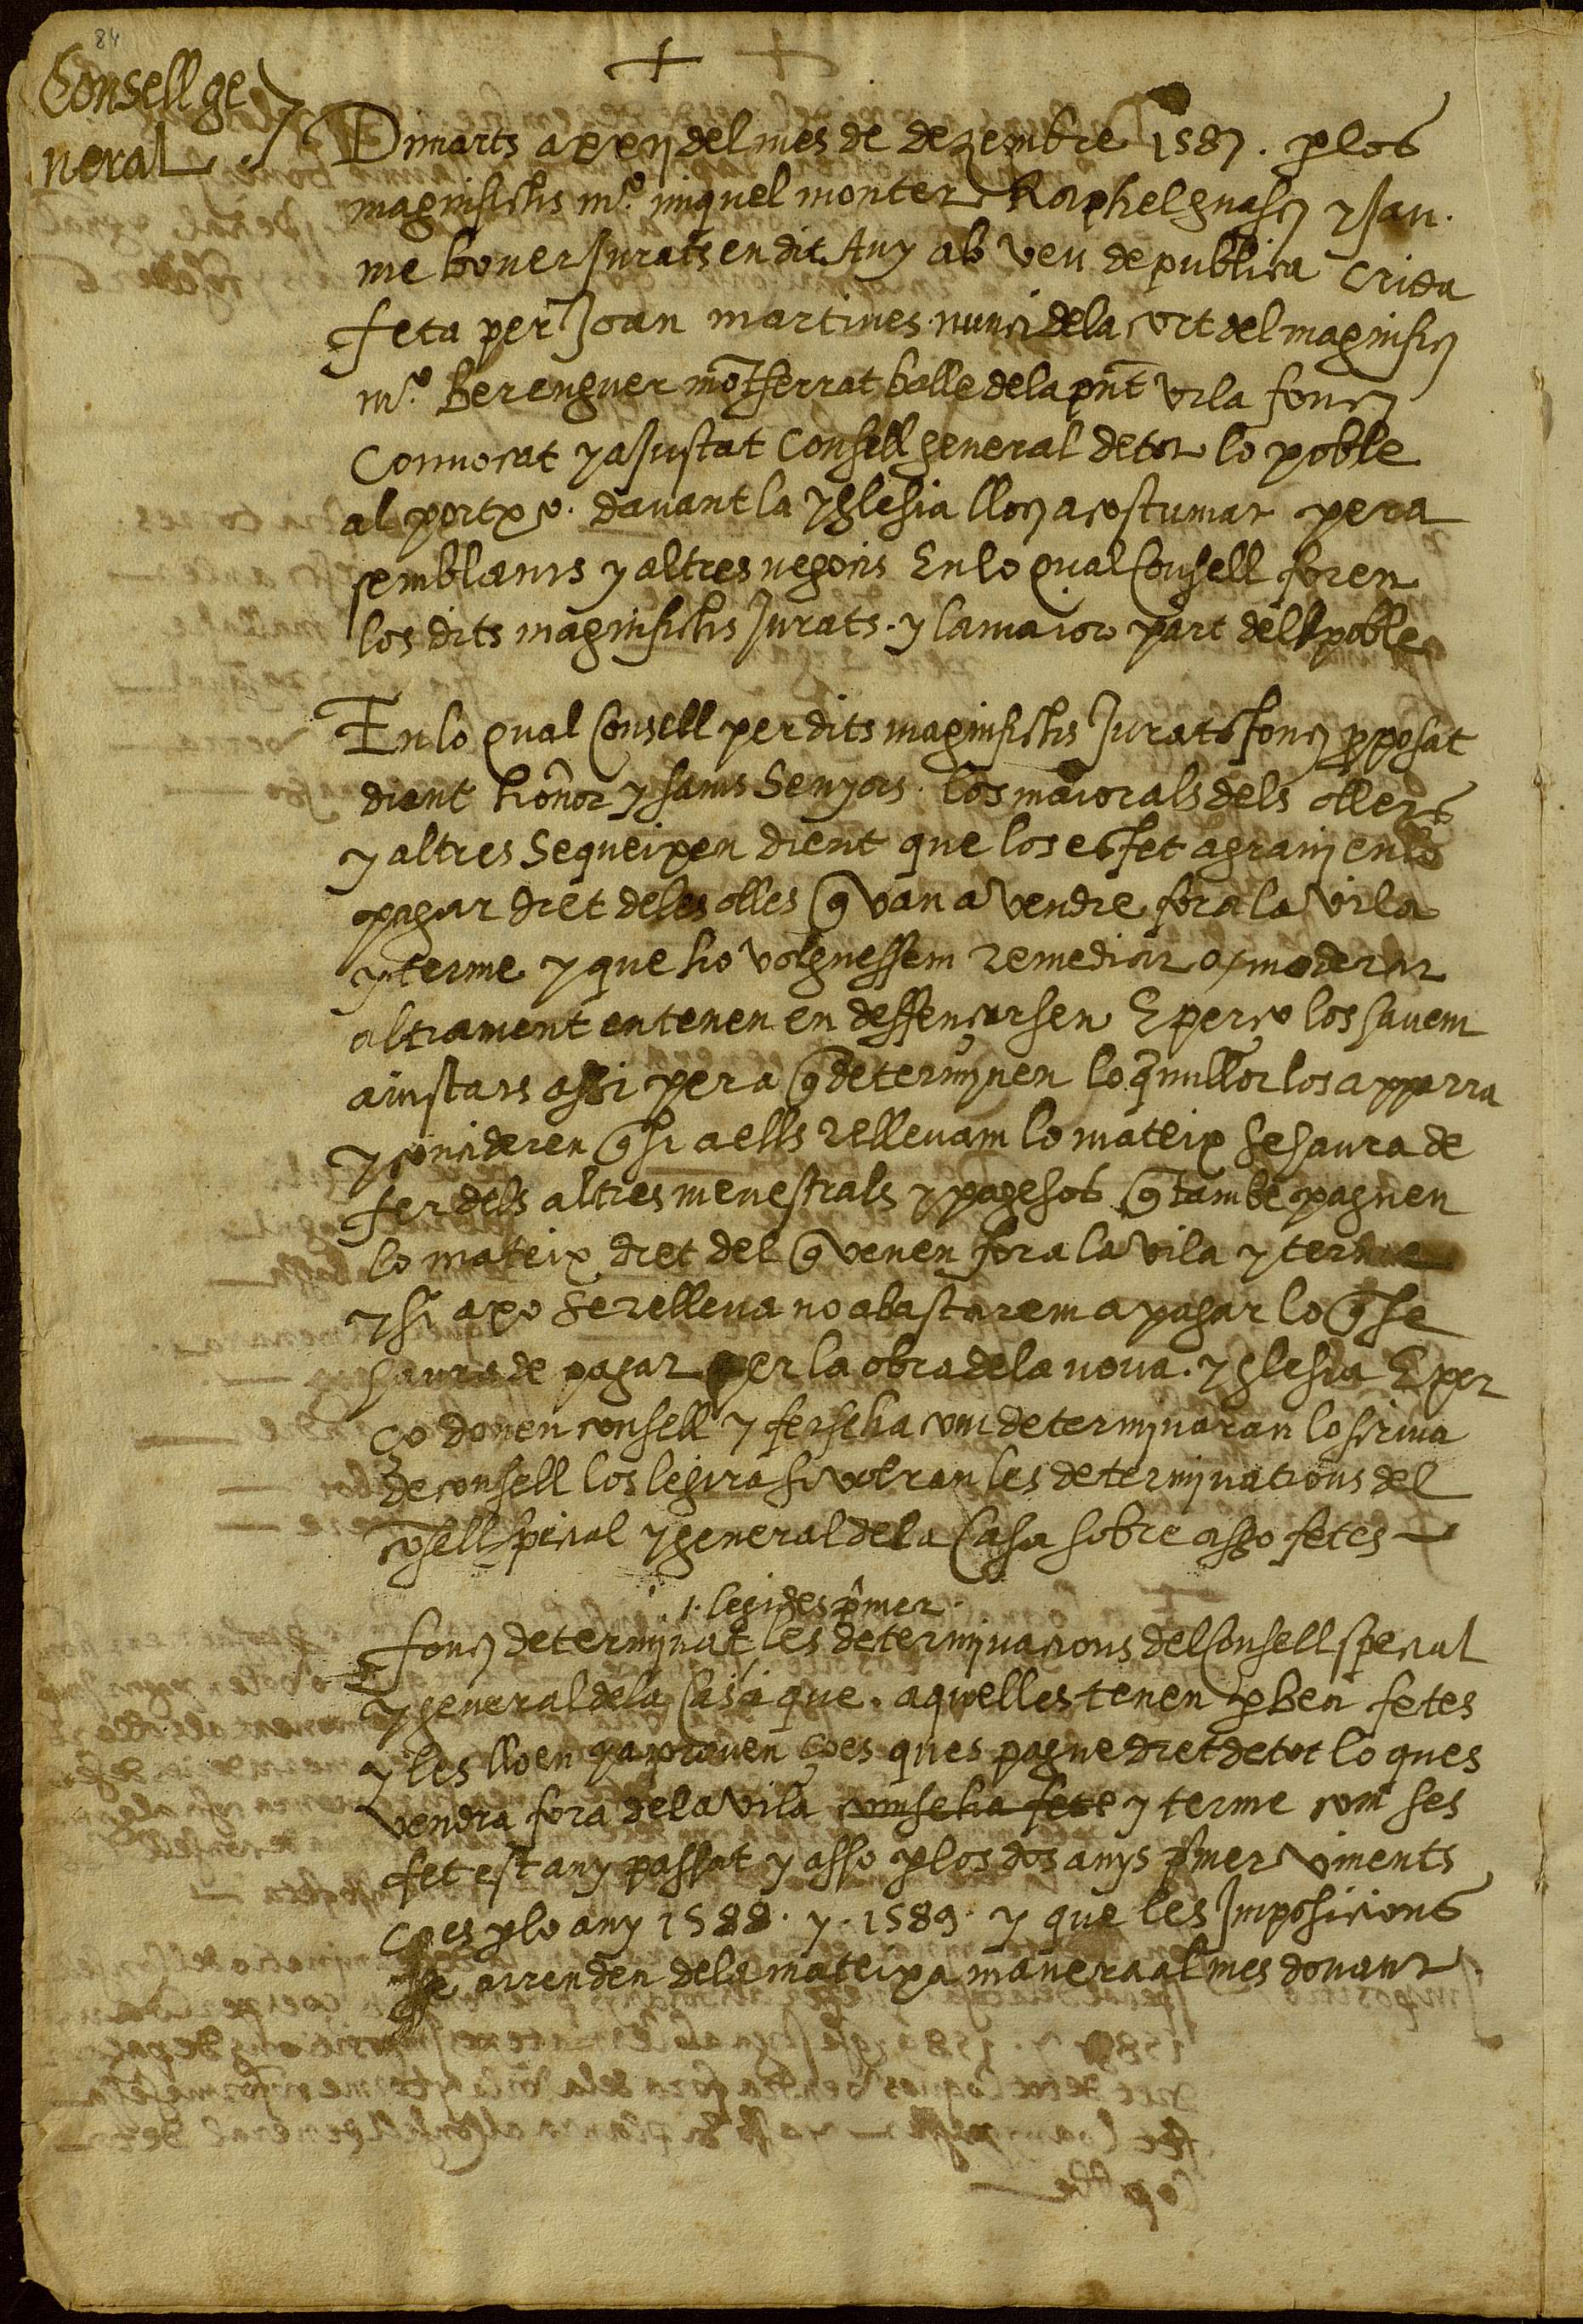 84
Consell ge
neral
Dimarts a xxij del mes de dezembre 1587. p los
magnifichs mº. miquel monter Raphel guasch y Jau.
me bover Jurats en dit Any ab veu de publica crida
feta per Joan martines nunci dela cort del magnifich
mº. Berenguer mõtferrat balle dela pñt vila fonch
Convocat y aJustat Consell general de tot lo poble
al portxo. davant la yglesia lloch acostumat pera
semblants y altres negocis En lo qual Consell foren
los dits magnifichs Jurats. y la maior part del poble
En lo qual Consell per dits magnifichs Jurats fonch pposat
dient honor y savis Senyors. los maiorals dels ollers
y altres Sequeixen dient que los es fet agravi en lo
pagar dret deles olles q van a vendre fora la vila
y terme y que ho volguessem remediar o moderar
altrament entenen en deffençarsen E perço los havem
aiustats assi per a q determinen lo q millor los apparra
y concideren q si a ells rellevam lo mateix se haura de
fer dels altres menestrals y pagesos q tambe paguen
lo mateix dret del q venen fora la vila y terme
y si axo se relleva no abastarem a pagar lo q se
haura de pagar per la obra dela nova. yglesia E per
ço donen consell y ferseha com determinaran lo scriva
de consell los legira si volran les determinations del
cõsell spicial y general dela Casa sobre asso fetes
1. legides pmer.
fonch determinat les determinacions del Consell special
y general dela Casa que. aquelles tenen p ben fetes
y les lloen y aproven ço es ques pague dret de tot lo ques
vendra fora dela vila com se ha fet y terme com ses
fet est any passat y asso p los dos anys pmer vinents
ço es p lo any 1588. y. 1589. y que les Imposicions
se arrenden dela mateixa manera al mes donant